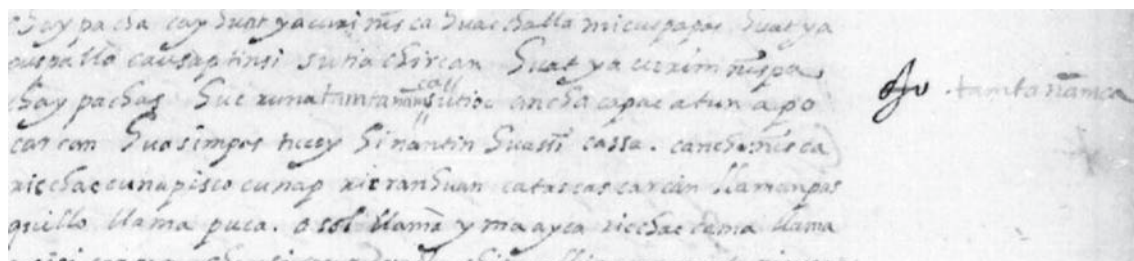 chay pacha cay huatyacuri ñisca huaccha lla micuspapas huatya
cuspalla causaptinsi sutiachircan huatyacurim ñispa
chay pachas huc runa tamtañamca sutioc ancha capac atun apo
carcan huasimpas tucoy hinantin huasri cassa. cancho ñisca
ricchaccuna pisco cunap ricranhuan catascas carcan llamanpas
quillo llama puca. o sol llama yma ayca ricchac cama llama
ojo. tamtañamca